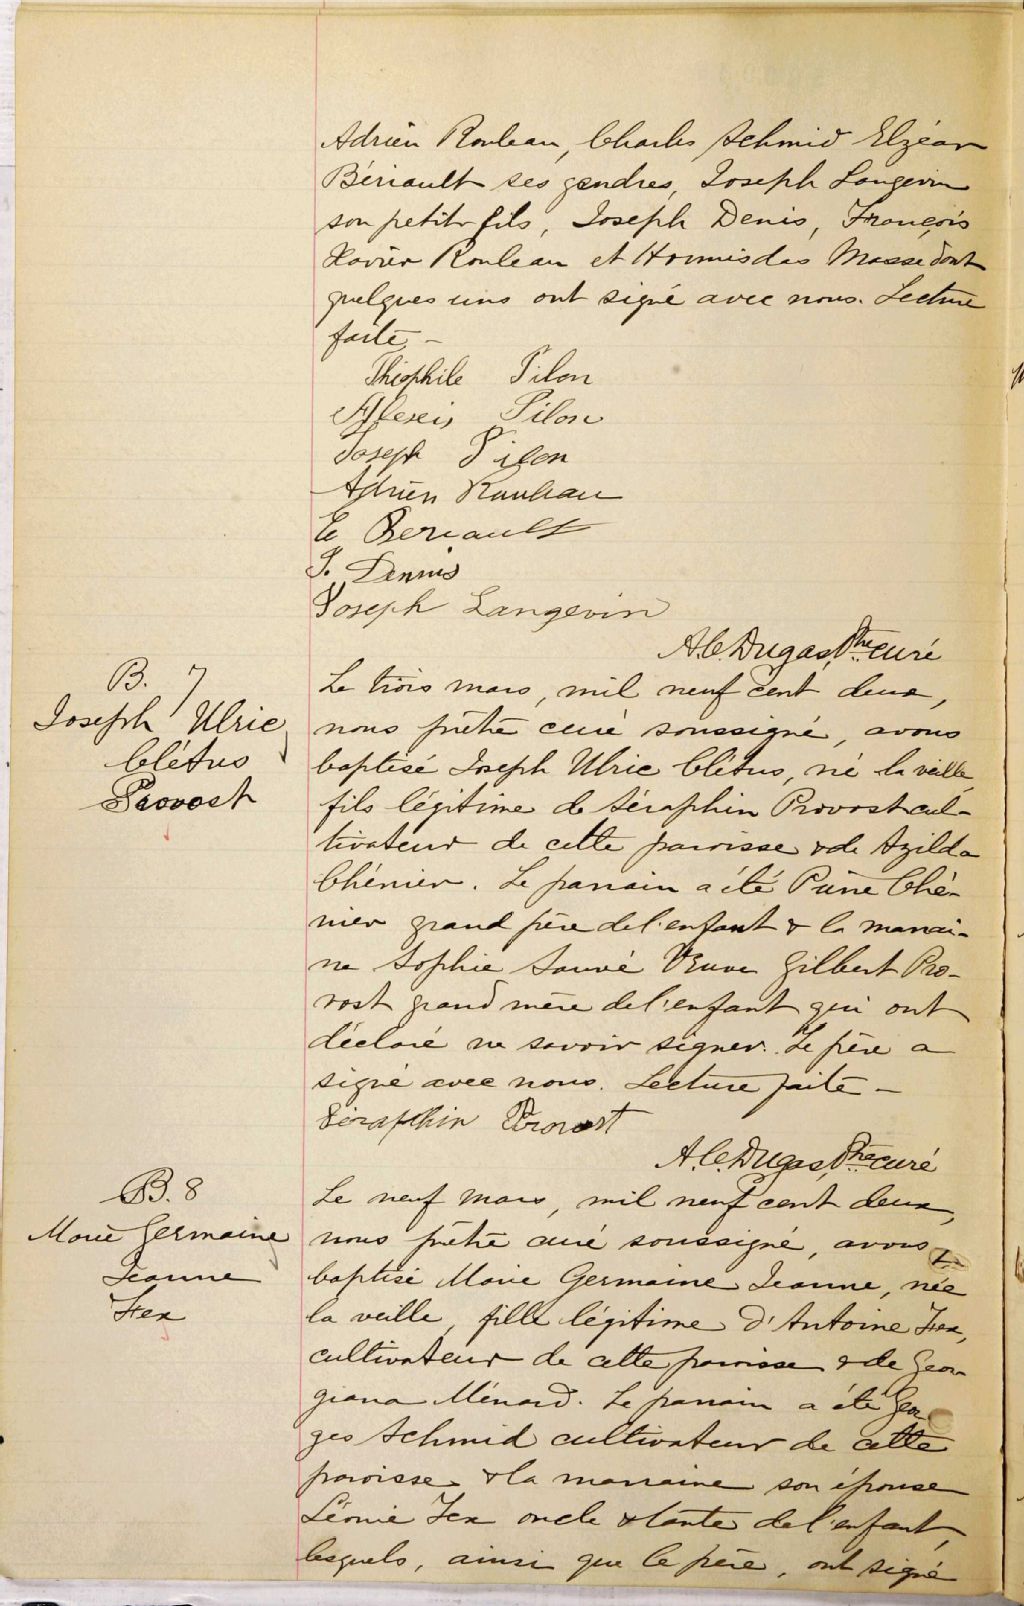 Adrien Rouleau, Charles Schmid Elzéar
Bériault ses gendres, Joseph Langevin
son petit-fils, Joseph Denis, François
Xavier Rouleau et Hormisdas Masse dont
quelques uns ont signé avec nous. Lecture
faite –
Théophile Pilon
Alexis Pilon
Joseph Pilon
Adrien Rouleau
E Beriault
J. Dennis
Joseph Langevin
A. C. Dugas, Ptre curé
B. 7
Joseph Ulric
Clétus
Provost
Le trois mars, mil neuf cent deux,
nous prêtre curé soussigné, avons
baptisé Joseph Ulric Clétus, né la veille,
fils légitime de Séraphin Provost cul-
tivateur de cette paroisse & de Azilda
Chénier. Le parrain a été Ché-
nier grand père de l'enfant & la marrai-
ne Sophie Sauvé Veuve Gilbert Pro-
vost grand mère de l'enfant qui ont
déclaré ne savoir signer. Le père a
signé avec nous. Lecture faite –
Séraphin Provost
A. C. Dugas, Ptre curé
B. 8
Marie Germaine
Jeanne
Fex
Le neuf mars, mil neuf cent deux,
nous prêtre curé soussigné, avons
baptisé Marie Germaine Jeanne, née
la veille, fille légitime d'Antoine Fex,
cultivateur de cette paroisse & de Geor-
giana Ménard. Le parrain a été Geor-
ges Schmid cultivateur de cette
paroisse & la marraine son épouse
Léonie Fex oncle & tante de l'enfant,
lesquels, ainsi que le père, ont signé